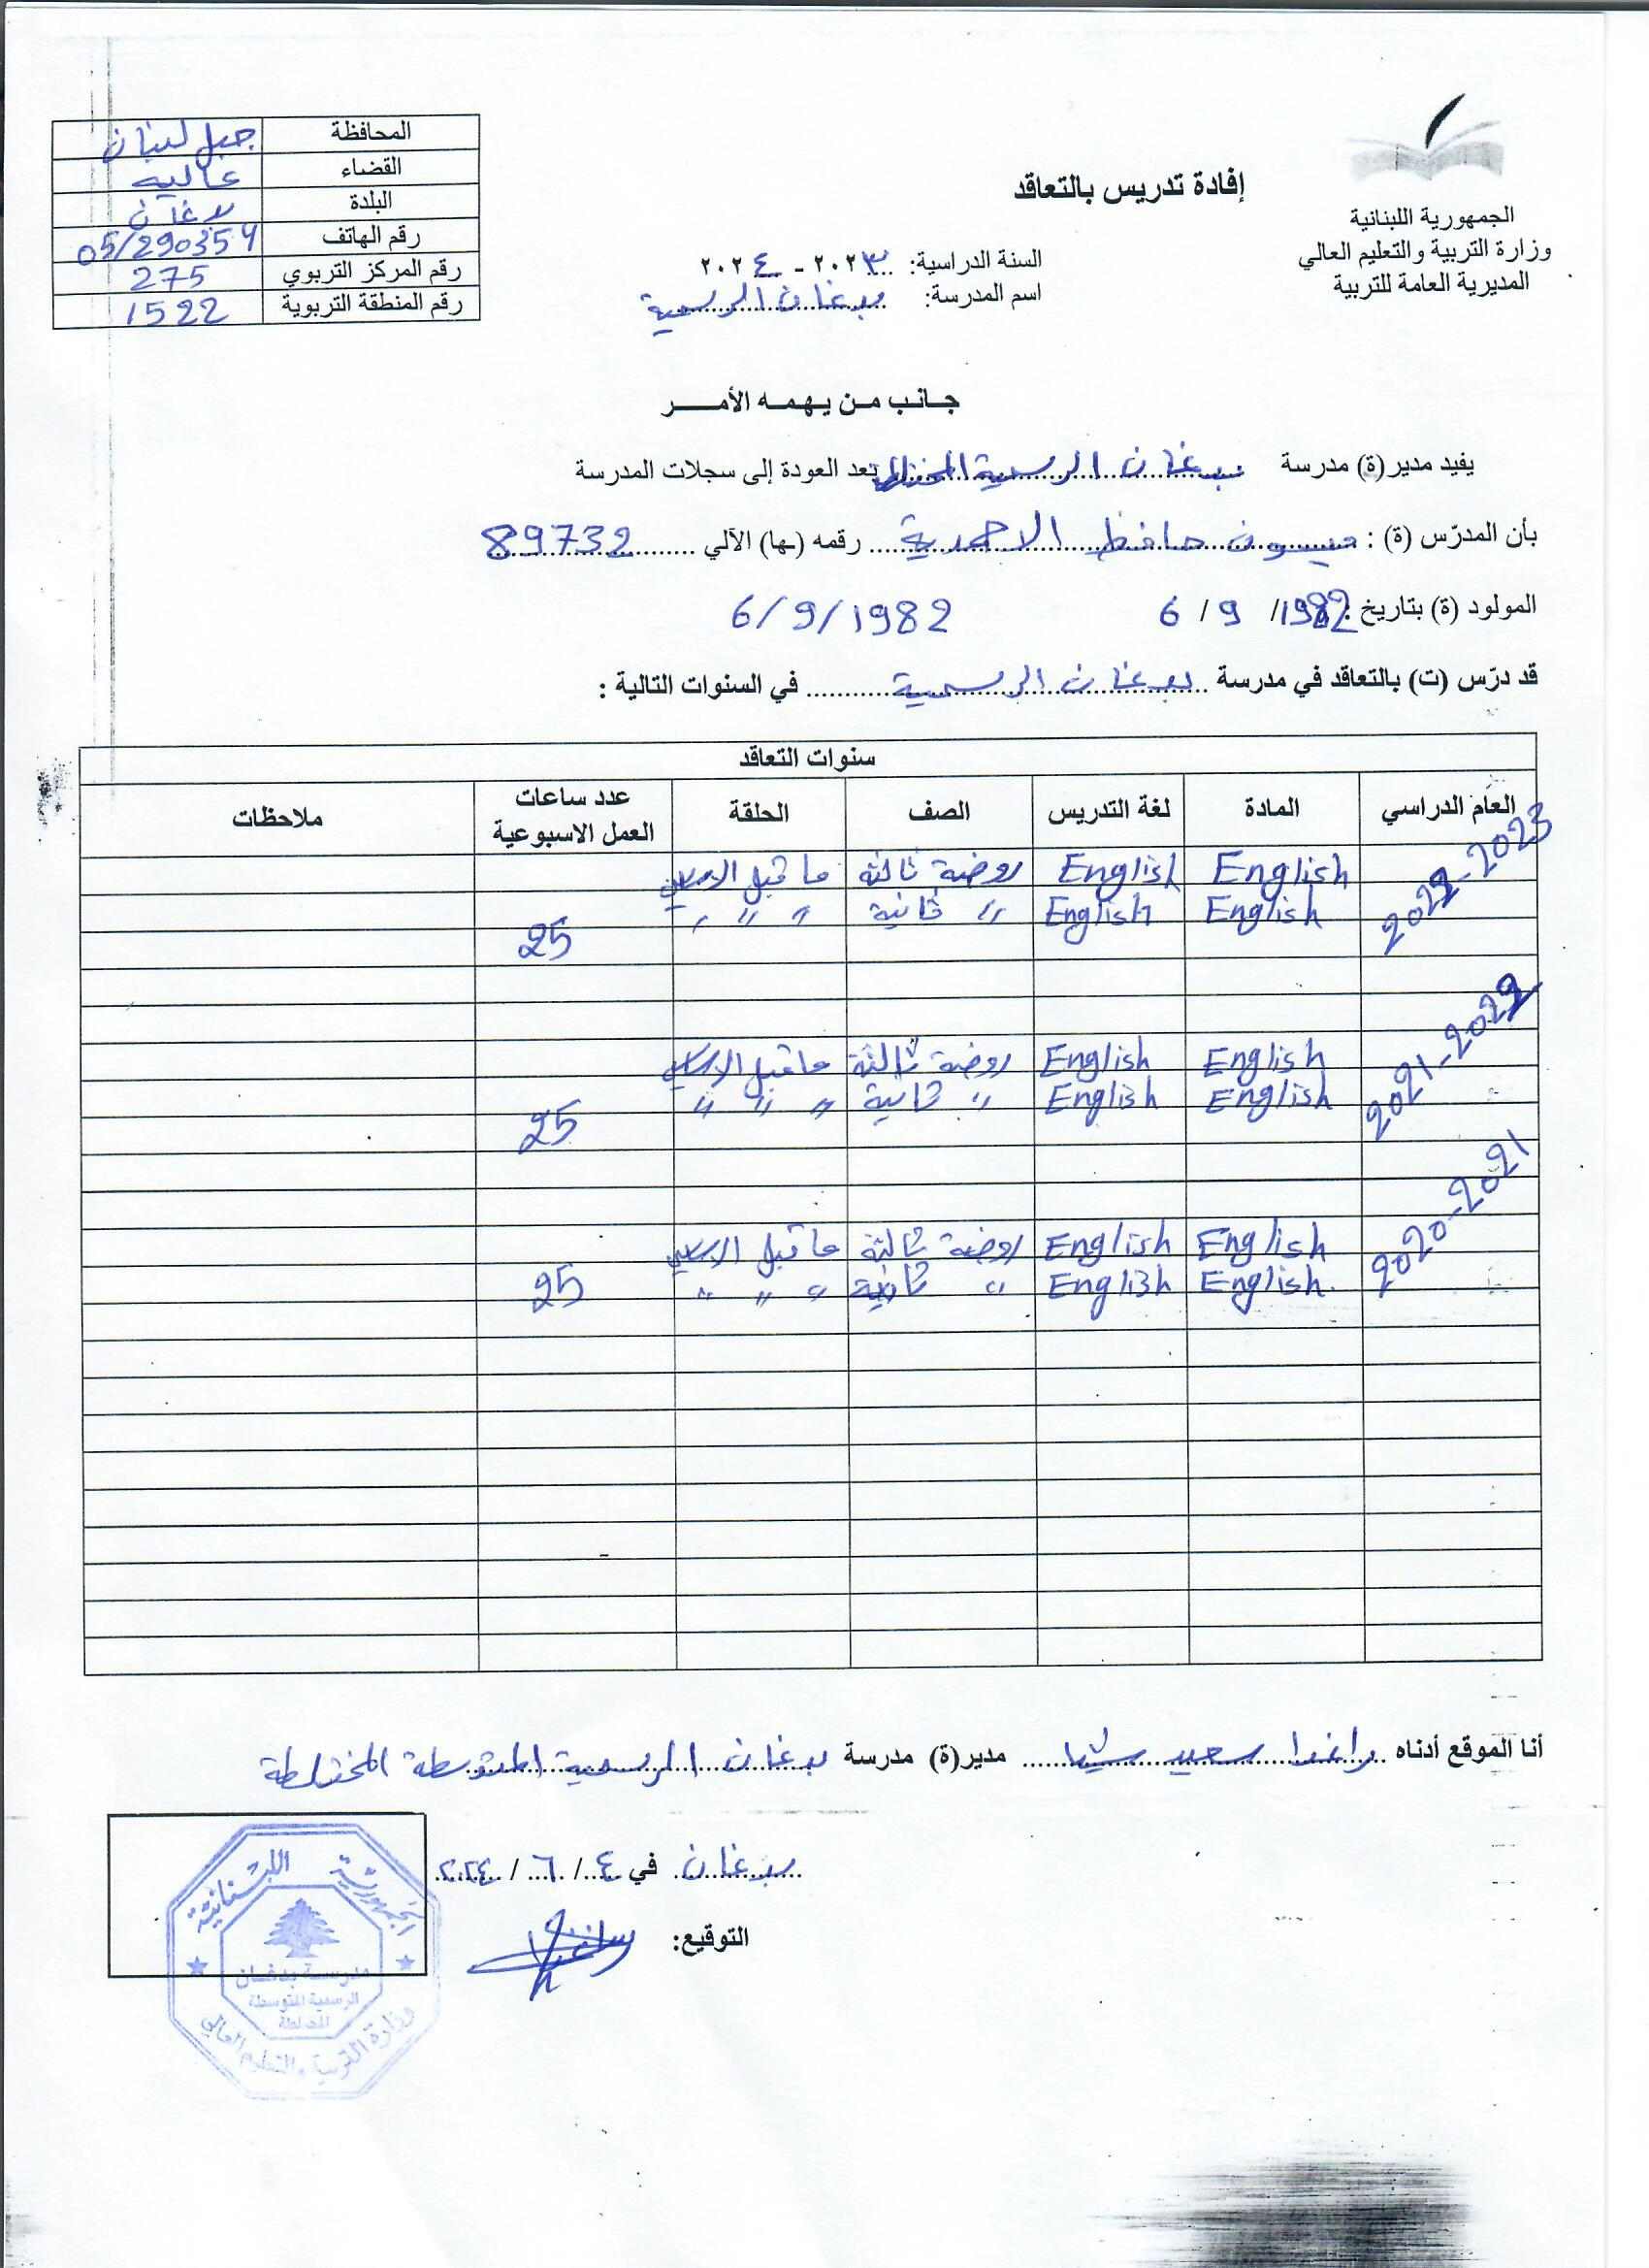 الجمهورية اللبنانية
وزارة التربية والتعليم العالي
المديرية العامة للتربية
إفادة تدريس بالتعاقد
السنة الدراسية: ٢٠٢٣ - ٢٠٢٤
اسم المدرسة: بدغان الرسمية
المحافظة جبل لبنان
القضاء عاليه
البلدة بدغان
رقم الهاتف 05/290354
رقم المركز التربوي 275
رقم المنطقة التربوية 1522
جـانـب مـن يـهـمـه الأمـــر
يفيد مدير(ة) مدرسة بدغان الرسمية المختلطة بعد العودة إلى سجلات المدرسة
بأن المدرّس (ة) : ميسون حافظ الاحمدية رقمه (ـها) الآلي 89732
المولود (ة) بتاريخ : 6 / 9 / 1982 6/9/1982
قد درّس (ت) بالتعاقد في مدرسة بدغان الرسمية في السنوات التالية :
سنوات التعاقد
العام الدراسي المادة لغة التدريس الصف الحلقة عدد ساعات العمل الاسبوعية ملاحظات
2022-2023 English English روضة ثالثة ما قبل الاساسي
English English " ثانية " " "
25
2021-2022 English English روضة ثالثة ما قبل الاساسي
English English " ثانية " " "
25
2020-2021 English English روضة ثالثة ما قبل الاساسي
English English " ثانية " " " 25
أنا الموقع أدناه راغدا سعيد شيا مدير(ة) مدرسة بدغان الرسمية المتوسطة المختلطة
بدغان في ٤ / ٦ / ٢٠٢٤
التوقيع:
الجمهورية اللبنانية
مدرسة بدغان
الرسمية المتوسطة
المختلطة
وزارة التربية والتعليم العالي